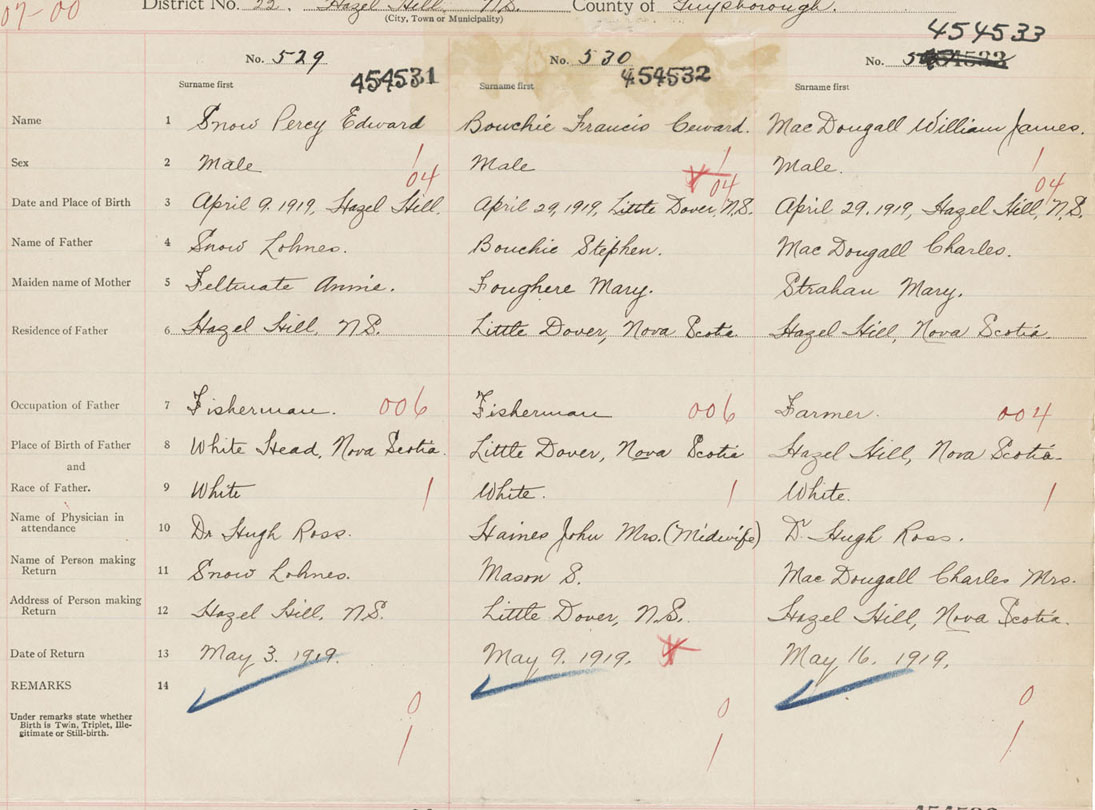 07-00
District No. 22. Hazel Hill N.S. County of Guysborough.
(City, Town or Municipality)
454533
No. 529 No. 530 No.
454531 454532
Surname first Surname first Surname first
Name 1 Snow Percy Edward Bouchie Francis Ceward. MacDougall William James.
Sex 2 Male Male Male.
1 1 1
04 04 04
Date and Place of Birth 3 April 9. 1919, Hazel Hill. April 29, 1919, Little Dover, N.S. April 29. 1919, Hazel Hill, N.S.
Name of Father 4 Snow Lohnes. Bouchie Stephen. MacDougall Charles.
Maiden name of Mother 5 Feltmate Annie. Foughere Mary. Strahan Mary.
Residence of Father 6 Hazel Hill, N.S. Little Dover, Nova Scotia Hazel Hill, Nova Scotia.
Occupation of Father 7 Fisherman. 006 Fisherman 006 Farmer. 004
Place of Birth of Father 8 White Head, Nova Scotia. Little Dover, Nova Scotia Hazel Hill, Nova Scotia.
and
Race of Father. 9 White 1 White. 1 White. 1
Name of Physician in
attendance 10 Dr Hugh Ross. Haines John Mrs. (Midwife) Dr Hugh Ross.
Name of Person making
Return 11 Snow Lohnes. Mason S. MacDougall Charles Mrs.
Address of Person making
Return 12 Hazel Hill, N.S. Little Dover, N.S. Hazel Hill, Nova Scotia.
Date of Return 13 May 3. 1919. May 9. 1919. May 16. 1919.
REMARKS 14
0 0 0
Under remarks state whether
Birth is Twin, Triplet, Ille-
gitimate or Still-birth.
1 1 1